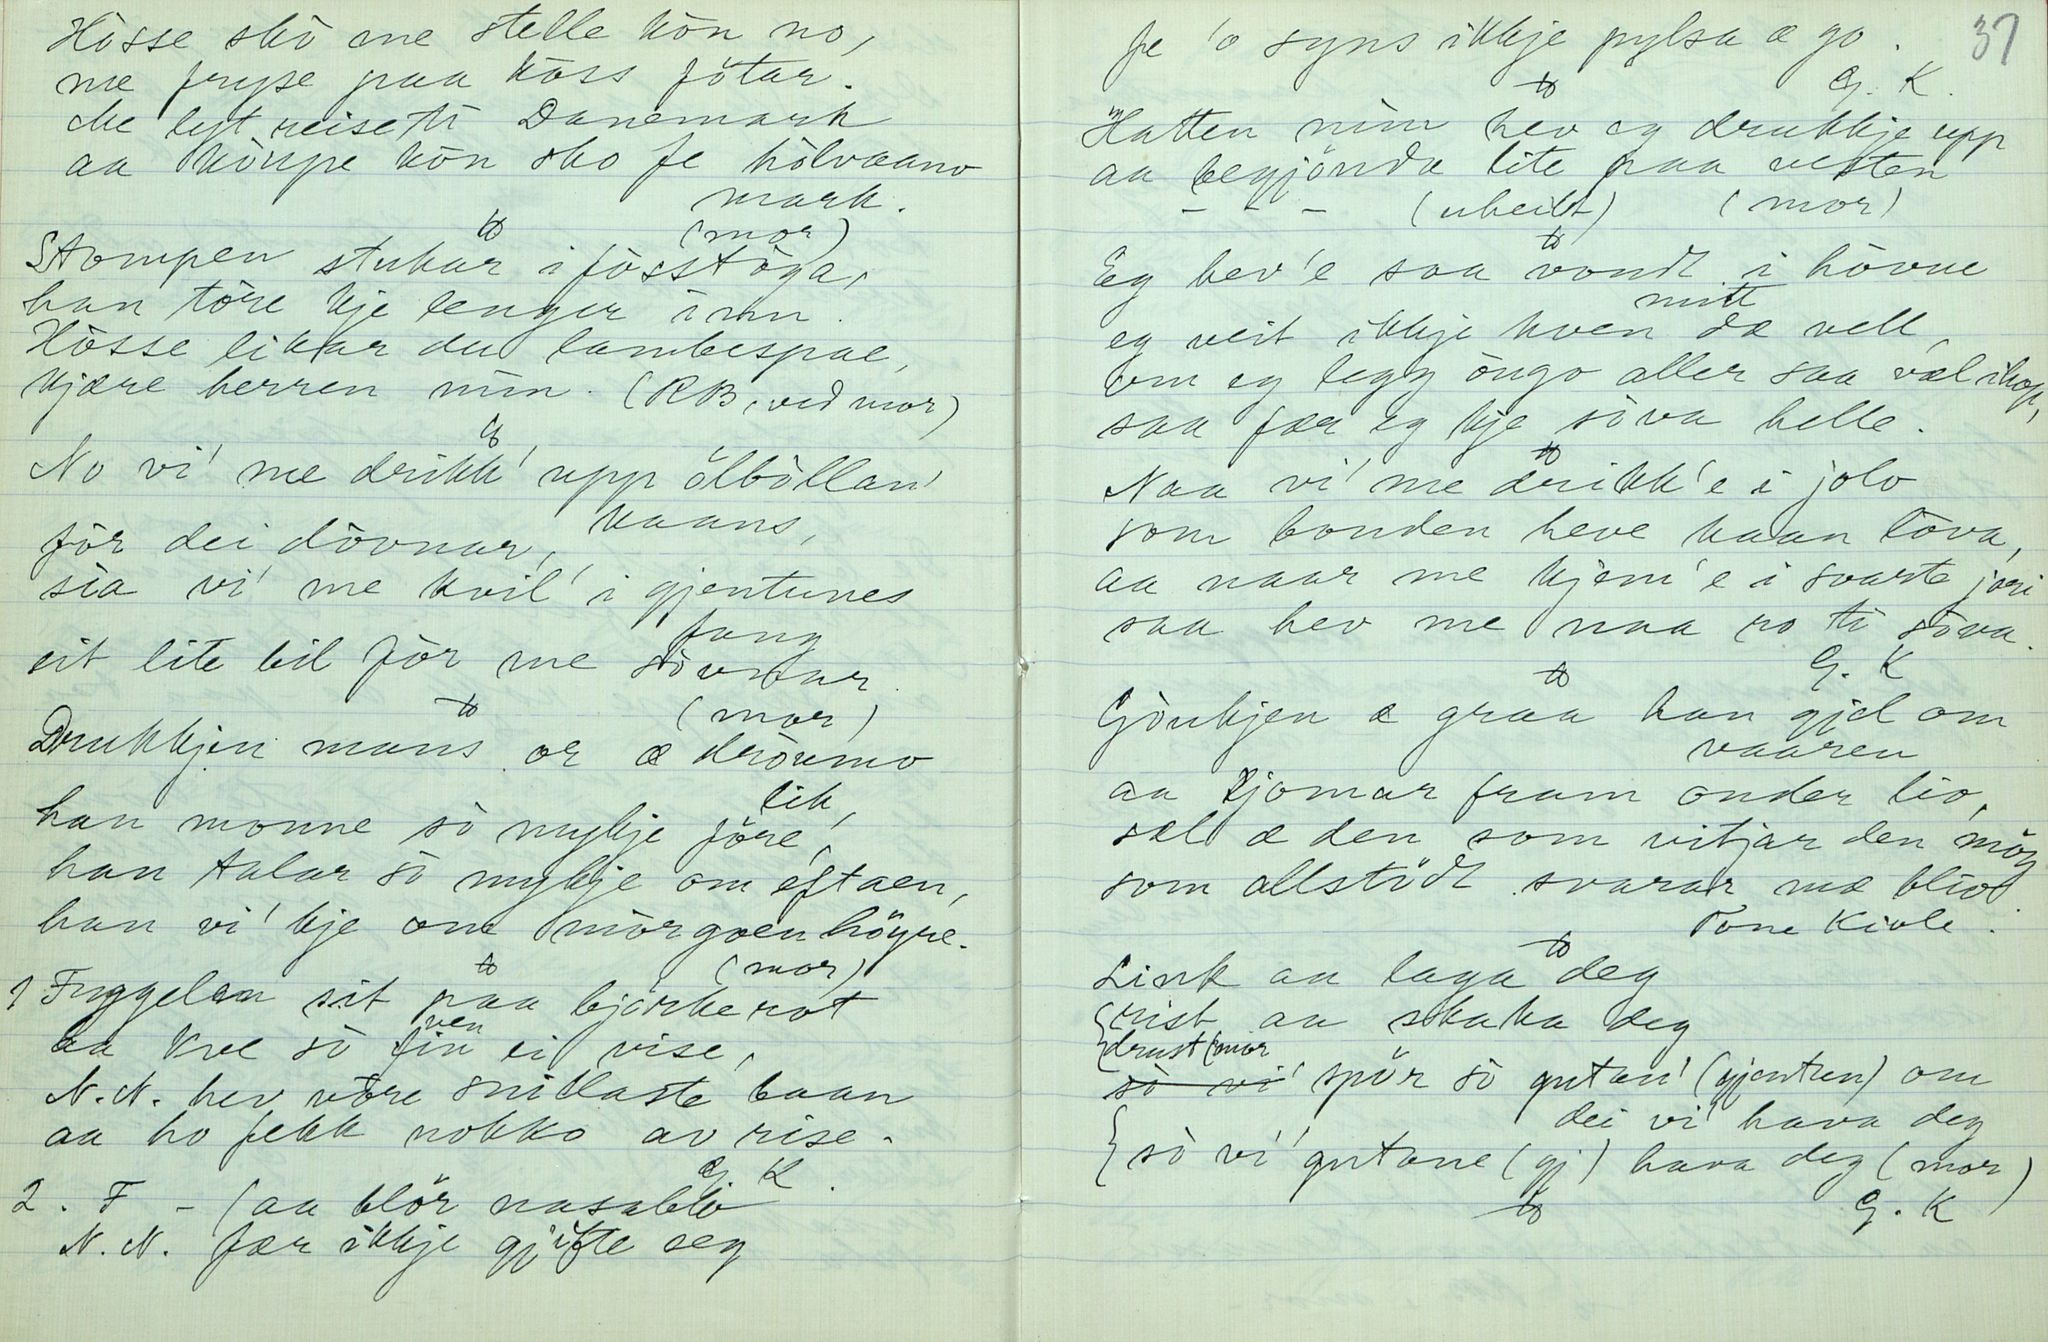 Hòsse skò me stelle kòn no,
me fryse paa kòss fötar.
Me lyt reise ti Danemark
aa köupe kòn sko fe hòlvaano
mark.
(mor)
Stompen stukar i fösstöga,
han töre kje lenger inn.
Hòsse likar du lambespae,
kjære herren min. (RB, ved mor)
No vi' me drikk' upp ölbòllan'
kaans,
för dei dövnar,
sia vi' me kvil' i gjentunes
fang
eit lite bil för me sövnar.
(mor)
Drukkjen mans or æ dröumo
lik,
han monne sò mykje före,
han talar sò mykje om eftaen,
han vi' kje om mòrgoen höyre.
(mor)
1 Fuggelen sit paa bjørkerot
aa kve sò fin ei vise,
ven
N.N. hev vöre snillaste baan
aa ho fekk nokko av rise.
G. K.
2. F - (aa blör nasablo
N.N. fær ikkje gjifte seg
37
fe 'o syns ikkje pylsa æ go.
G. K.
Hatten min hev eg drukkje upp
aa begjönda lite paa vesten
- - - (uheilt) (mor)
Eg hev'e saa vondt i hövue
mitt
eg veit ikkje kven dæ vell,
om eg legg öugo aller saa væl ihop,
saa fær eg kje söva helle.
Naa vi' me drikk'e i jolo
som bonden heve kaan lòva,
aa naar me kjem'e i svarte jori
saa hev me naa ro ti söva.
G. K
Göukjen æ graa han gjel om
vaaren
aa kjomar fram onder lio,
sæl æ den som vitjar den möy
som allstödt svarar mæ blio.
Tone Kivle.
Link aa laga deg
{rist aa skaka deg
{drust (mor
sò vi' spör sò gutan' (gjentun) om
dei vi' hava deg
{sò vi' gutane (gj) hava deg (mor)
G. K